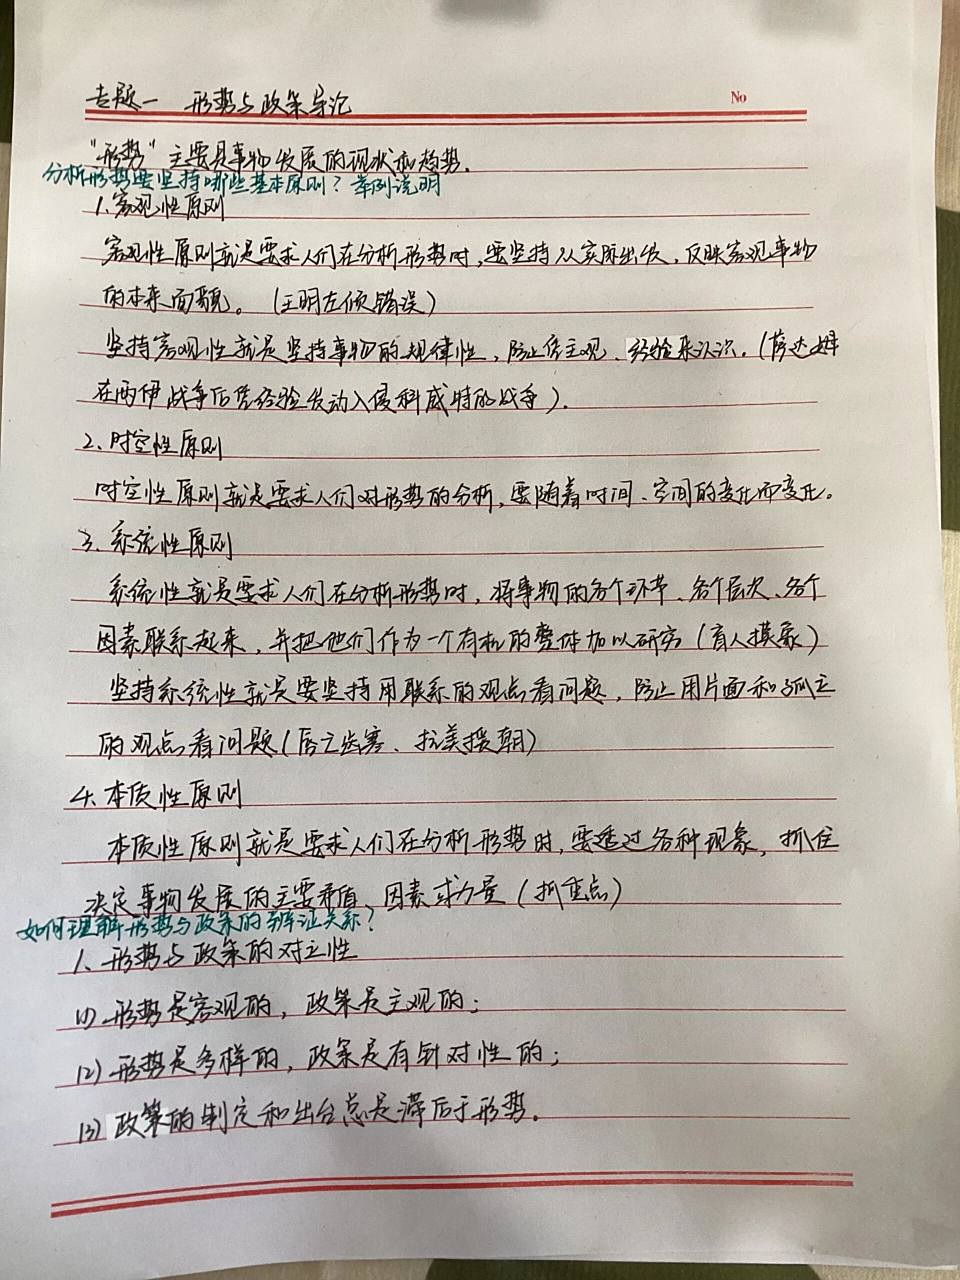 专题一 形势与政策导论
No
“形势”主要是事物发展的现状和趋势。
分析形势要坚持哪些基本原则？举例说明
1.客观性原则
客观性原则就是要求人们在分析形势时，要坚持从实际出发，反映客观事物
的本来面貌。（王明左倾错误）
坚持客观性就是坚持事物的规律性，防止凭主观、经验来认识。（萨达姆
在两伊战争后凭经验发动入侵科威特的战争）。
2、时空性原则
时空性原则就是要求人们对形势的分析，要随着时间、空间的变化而变化。
3、系统性原则
系统性就是要求人们在分析形势时，将事物的各个环节、各个层次、各个
因素联系起来，并把他们作为一个有机的整体加以研究（盲人摸象）
坚持系统性就是要坚持用联系的观点看问题，防止用片面和孤立
的观点看问题（唇亡齿寒、抗美援朝）
4、本质性原则
本质性原则就是要求人们在分析形势时，要透过各种现象，抓住
决定事物发展的主要矛盾、因素或力量（抓重点）
如何理解形势与政策的辩证关系？
1、形势与政策的对立性
(1)形势是客观的，政策是主观的；
(2)形势是多样的，政策是有针对性的；
(3)政策的制定和出台总是滞后于形势。